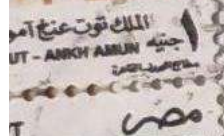 الملك توت عنخ آمو
UT - ANKH AMUN
١ جنيه
مصر